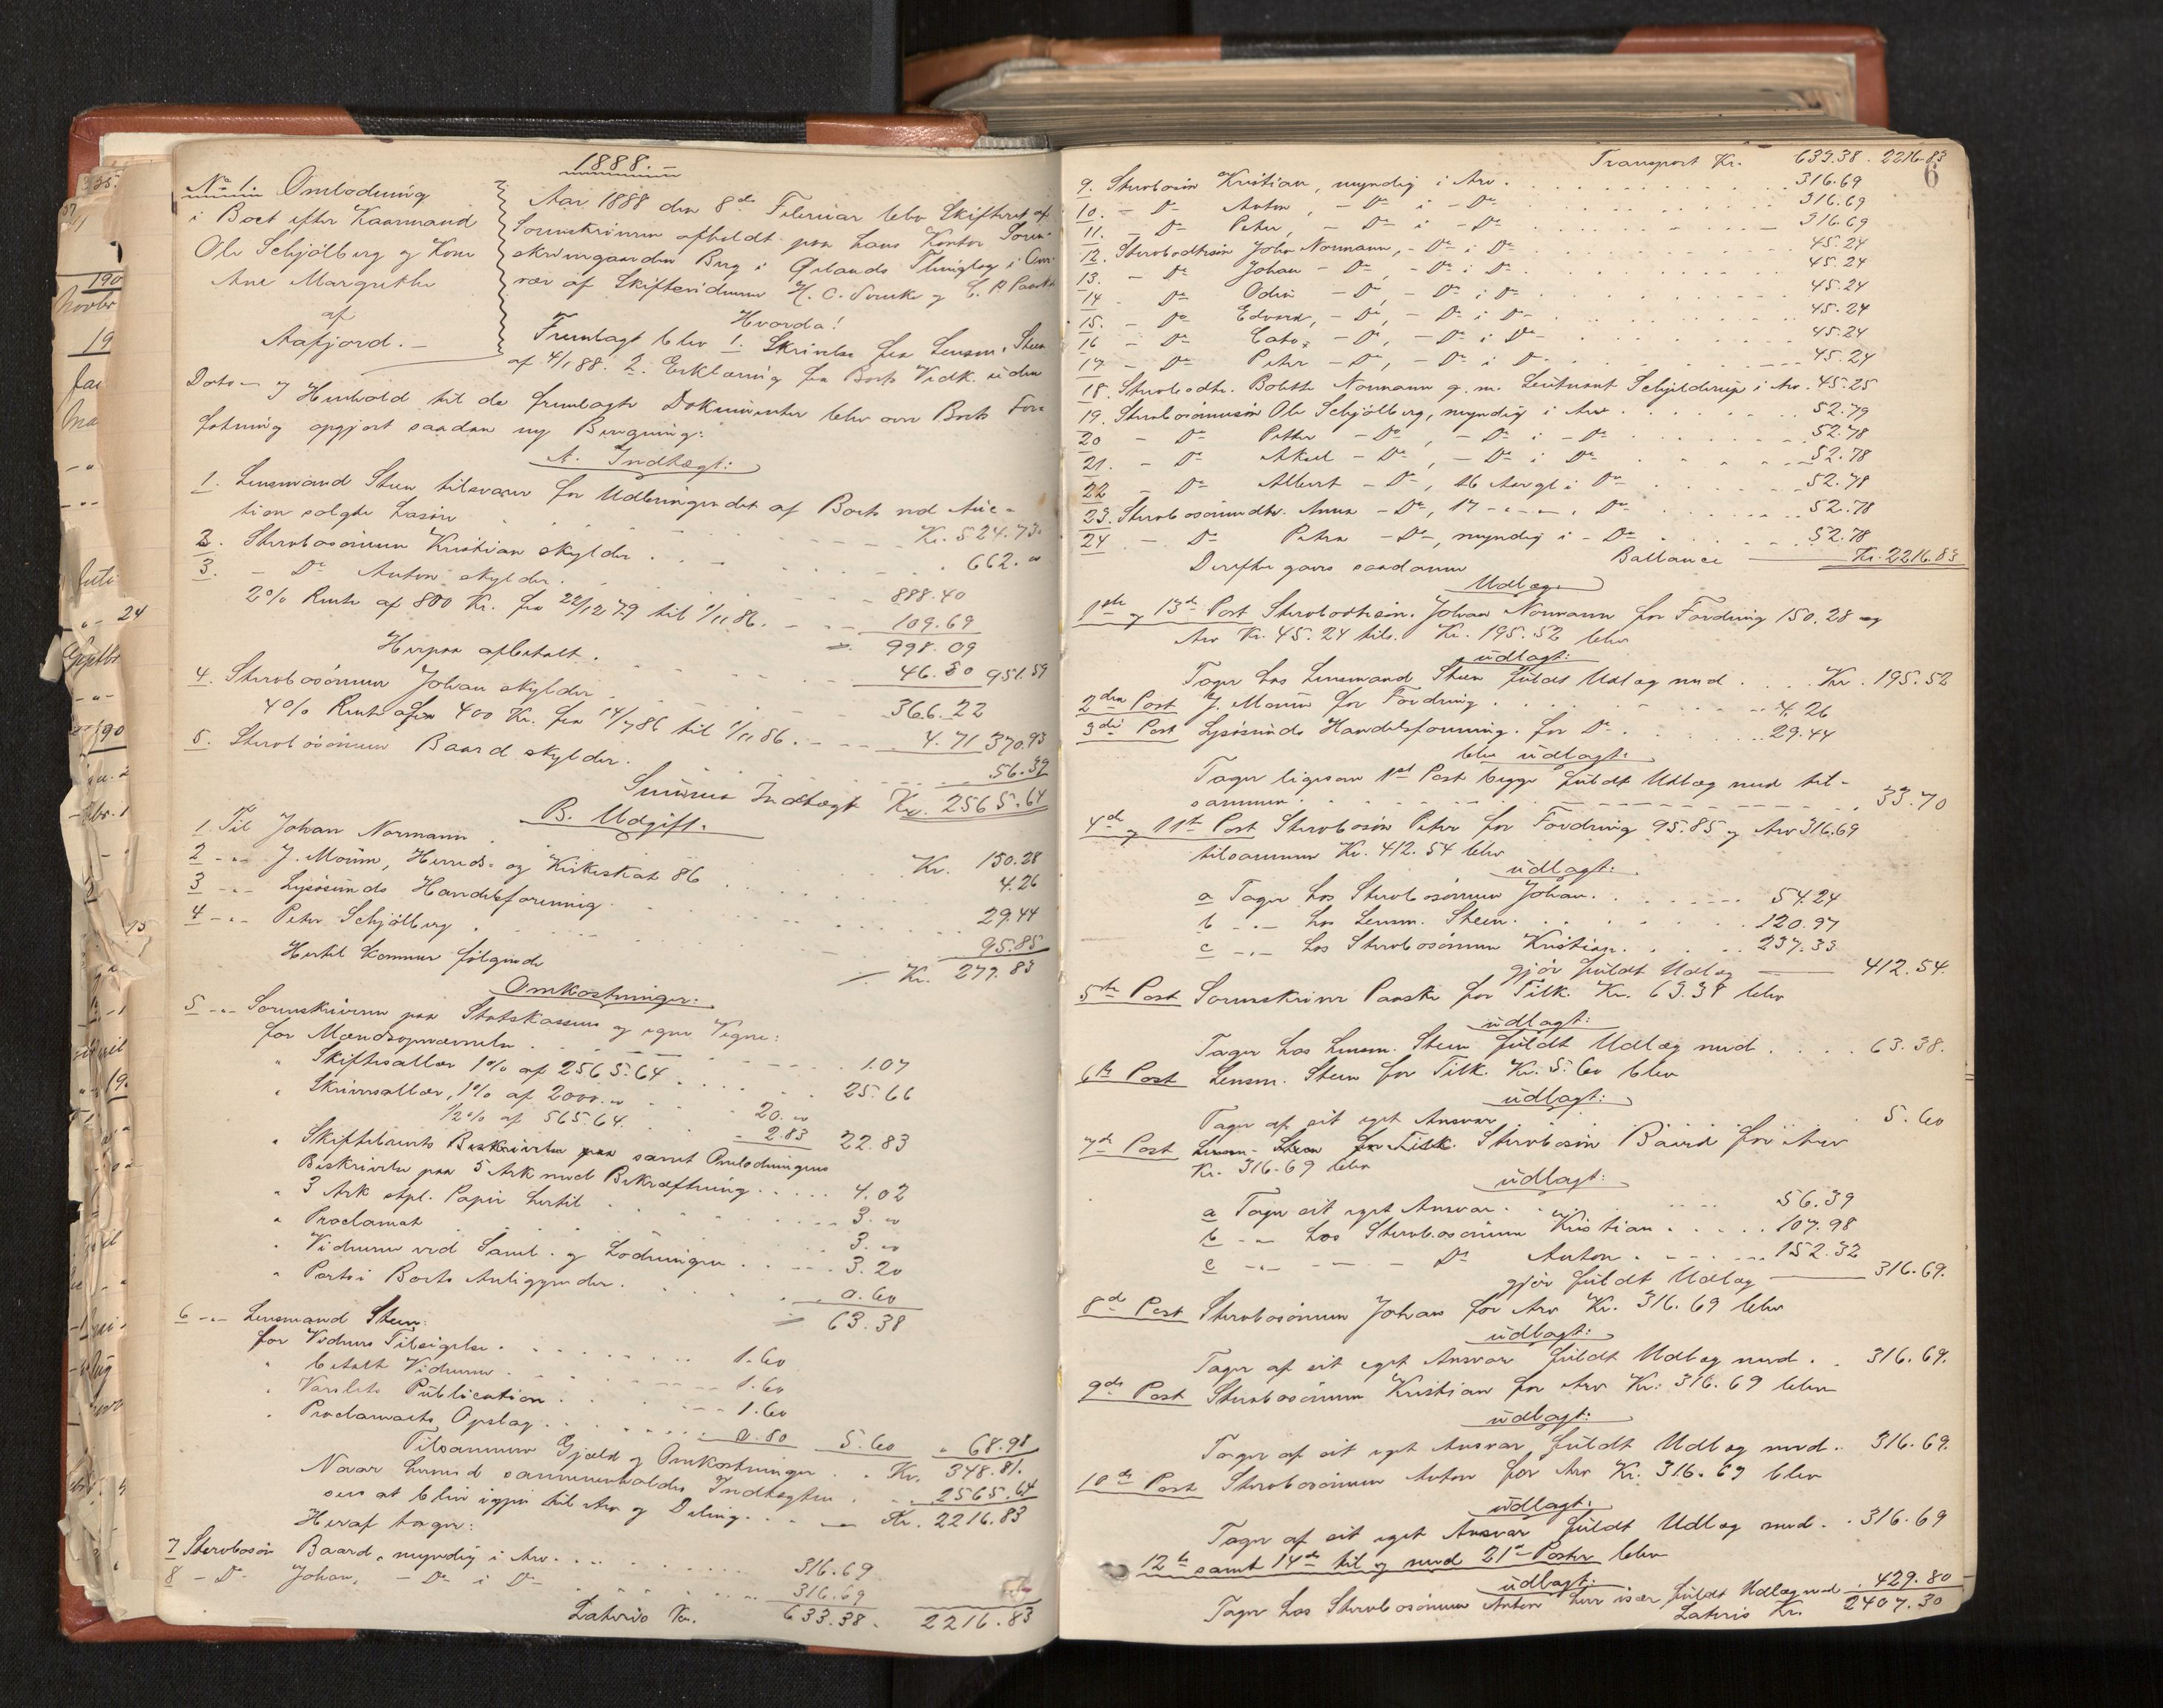 1888. –
No 1. Omlodning
i Boet efter Kaarmand
Ole Schjölberg og Kone
Ane Margrethe
af
Aafjord. –
Aar 1888 den 8de Februar blev Skifteret af
Sorenskriveren afholdt paa hans Kontor Soren-
skrivergaarden Berg i Ørlands Thinglag i Over-
vær af Skiftevidnerne
Hvorda!
Fremlagt blev 1. Skrivelse fra Lensm. Steen
af 4/1 88. 2. Erklæring fra Boets Vedk. uden
Dato – I Henhold til de fremlagte Dokumenter blev over Boets For-
fatning opgjort saadan ny Beregning:
A. Indtægt:
1. Lensmand Steen tilsvarer for Udbringendet af Boets ved Auc-
tion solgte Løsøre Kr. 524.73.
2. Stervbosönnen Kristian skylder 662. "
3. – Do Anton skylder 888.40
2% Rente af 800 Kr. fra 22/12 79 til 1/11 86. 109.69
998.09
Herpaa afbetalt 46.50 951.59
4. Stervbosönnen Johan skylder 366.22
4% Rente af 400 Kr. fra 14/7 86 til 1/11 86. 4.71 370.93
5. Stervbosönnen Baard skylder 56.39
Summa Indtægt Kr. 2565.64
B. Udgift.
1. Til Johan Normann Kr. 150.28
2 -"- J. Morum, Herreds- og Kirkeskat 86 4.26
3 -"- Lysösunds Handelsforening 29.44
4 -"- Peter Schjölberg 95.85
Hertil kommer fölgende Kr. 279.83
Omkostninger:
5 -"- Sorenskriveren paa Statskassens og egne Vegne:
for Mændsopnævnelse 1.07
" Skiftesallær 1% af 2565.64 25.66
" Skriversallær, 1% af 2000. " 20. "
1/2% af 565.64. 2.83 22.83
" Skiftebrevets Beskrivelse samt Omlodningens
Beskrivelse paa 5 Ark med Bekræftning 4.02
" 3 Ark stpl. Papir hertil 3. "
" Proclamat 3. "
" Vidnerne ved Saml. og Lodningen 3.20
" Porto i Boets Anliggender 0.60
63.38
6 -"- Lensmand Steen:
for Vidners Tilsigelse 1.60
" betalt Vidnerne 1.60
" Varslets Publication 1.60
" Proclamaets Opslag 0.80 5.60 68.98
Tilsammen Gjæld og Omkostninger Kr. 348.81.
Naar hermed sammenholdes Indtægten 2565.64
sees at blive igjen til Arv og Deling Kr. 2216.83
Heraf tager:
7 Stervbosön Baard, myndig i Arv 316.69
8 – Do Johan, – Do i Do 316.69
Lateris Kr. 633.38. 2216.83
6
Transport Kr. 633.38. 2216.83
9. Stervbosön Kristian, myndig i Arv 316.69
10. – Do Anton, – Do i – Do 316.69
11. – Do Peter, – Do i – Do 316.69
12. Stervbodtrsön John Normann, – Do i Do 45.24
13. – Do Johan – Do, – Do i Do 45.24
14 – Do Odin – Do, – Do i Do 45.24
15. – Do Edvard, – Do, – Do i Do 45.24
16 – Do Cato, – Do, – Do i Do 45.24
17 – Do Peter – Do, – Do i Do 45.24
18. Stervbodtr. Bolette Normann g. m. Leutnant Schjelderup i Arv. 45.25
19. Stervbosönnesön Ole Schjölberg, myndig i Arv 52.79
20 – Do Petter – Do, – Do i – Do 52.78
21. – Do Aksel – Do, – Do i Do 52.78
22 – Do Albert – Do, 16 Aar gl. i Do 52.78
23. Stervbosönnedtr. Anna – Do, 17 -"- – " – i Do 52.78
24 – Do Petra – Do, myndig i – Do 52.78
Ballance Kr. 2216.83
Derefter gaves saadanne
Udlæg:
1ste og 13de Post Stervbodtrsön. Johan Normann for Fordring 150.28 og
Arv Kr. 45.24 tils. Kr. 195.52 blev
udlagt:
Tager hos Lensmand Steen fuldt Udlæg med Kr. 195.52
2den Post J. Morum for Fordring 4.26
3die Post Lysösunds Handelsforening. for Do 29.44
blev udlagt:
Tager ligesom 1ste Post begge fuldt Udlæg med til-
sammen 33.70
4de og 11te Post Stervbosön Peter for Fordring 95.85 og Arv 316.69
tilsammen Kr. 412.54 blev
udlagt:
a Tager hos Stervbosönnen Johan 54.24
b -"- hos Lensm. Steen 120.97
c -"- hos Stervbosönnen Kristian 237.33
gjör fuldt Udlæg 412.54.
5te Post Sorenskriver Paaske for Tilk. Kr. 63.38 blev
udlagt:
Tager hos Lensm. Steen fuldt Udlæg med 63.38.
6te Post Lensm. Steen for Tilk. Kr. 5.60 blev
udlagt:
Tager af sit eget Ansvar 5.60
7de Post Lensm. Steen for Tilk. Stervbosön Baard for Arv
Kr. 316.69 blev
udlagt:
a Tager sit eget Ansvar 56.39
b -"- hos Stervbosönnen Kristian 107.98
c -"- – – Do Anton 152.32
gjör fuldt Udlæg 316.69.
8de Post Stervbosönnen Johan for Arv Kr. 316.69 blev
udlagt:
Tager af sit eget Ansvar fuldt Udlæg med 316.69.
9de Post Stervbosönnen Kristian for Arv Kr. 316.69 blev
udlagt:
Tager af sit eget Ansvar fuldt Udlæg med 316.69.
10de Post Stervbosönnen Anton for Arv Kr. 316.69 blev
udlagt:
Tager af sit eget Ansvar fuldt Udlæg med 316.69
12te samt 14de til og med 21de Poster blev
udlagt:
Tager hos Stervbosönnen Anton hver især fuldt Udlæg med 429.80
Lateris Kr. 2407.30